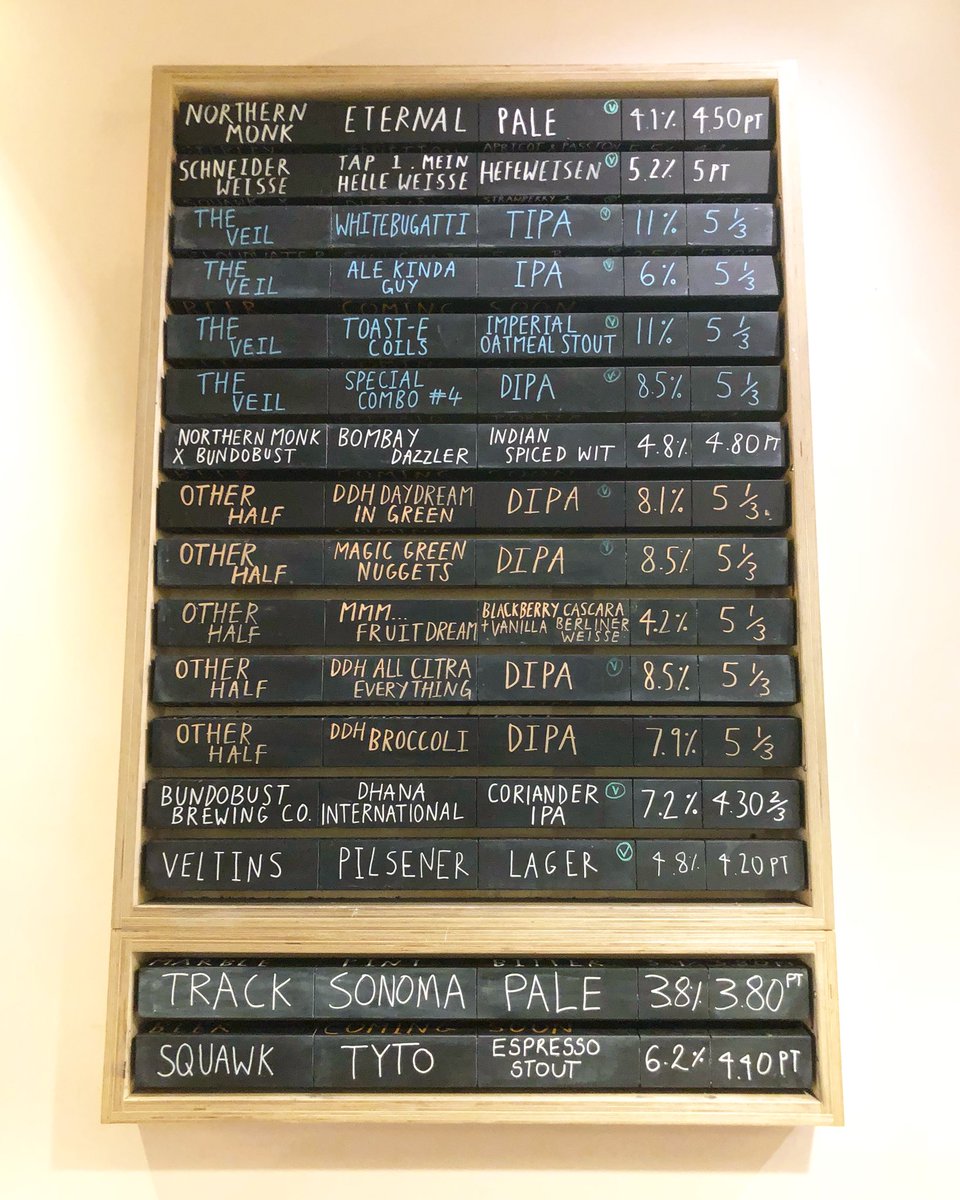 NORTHERN MONK ETERNAL PALE V 4.1% 4.50 PT
SCHNEIDER WEISSE TAP 1. MEIN HELLE WEISSE HEFEWEISEN V 5.2% 5 PT
THE VEIL WHITEBUGATTI TIPA V 11% 5 1/3
THE VEIL ALE KINDA GUY IPA V 6% 5 1/3
THE VEIL TOAST-E COILS IMPERIAL OATMEAL STOUT V 11% 5 1/3
THE VEIL SPECIAL COMBO #4 DIPA V 8.5% 5 1/3
NORTHERN MONK X BUNDOBUST BOMBAY DAZZLER INDIAN SPICED WIT 4.8% 4.80 PT
OTHER HALF DDH DAYDREAM IN GREEN DIPA V 8.1% 5 1/3
OTHER HALF MAGIC GREEN NUGGETS DIPA V 8.5% 5 1/3
OTHER HALF MMM... FRUIT DREAM BLACKBERRY CASCARA + VANILLA BERLINER WEISSE 4.2% 5 1/3
OTHER HALF DDH ALL CITRA EVERYTHING DIPA V 8.5% 5 1/3
OTHER HALF DDH BROCCOLI DIPA 7.9% 5 1/3
BUNDOBUST BREWING CO. DHANA INTERNATIONAL CORIANDER IPA V 7.2% 4.30 2/3
VELTINS PILSENER LAGER V 4.8% 4.20 PT
MARBLE PINT BITTER
TRACK SONOMA PALE 3.8% 3.80 PT
BEER COMING SOON
SQUAWK TYTO ESPRESSO STOUT 6.2% 4.40 PT